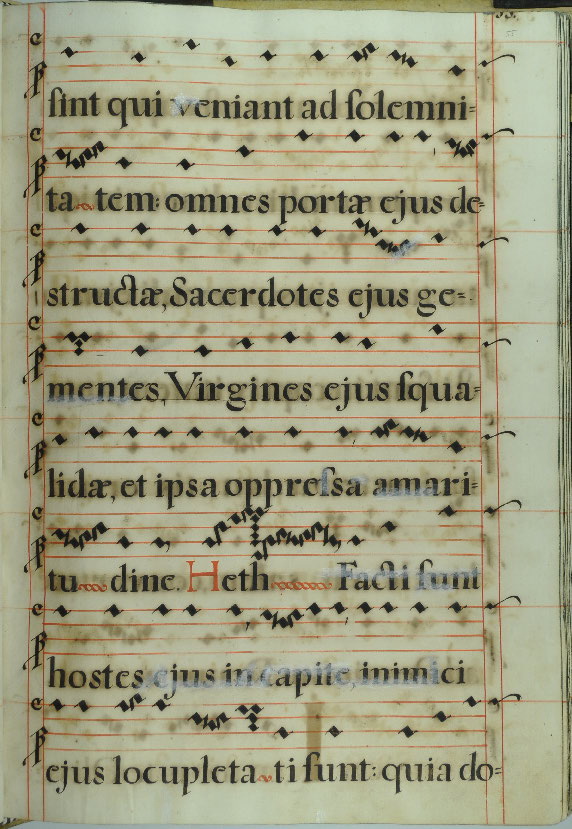 55
sint qui veniant ad solemni=
ta tem: omnes portæ ejus de=
structæ, Sacerdotes ejus ge=
mentes, Virgines ejus squa=
lidæ, et ipsa oppressa amari=
tu dine. Heth Facti sunt
hostes ejus in capite, inimici
ejus locupleta ti sunt: quia do=